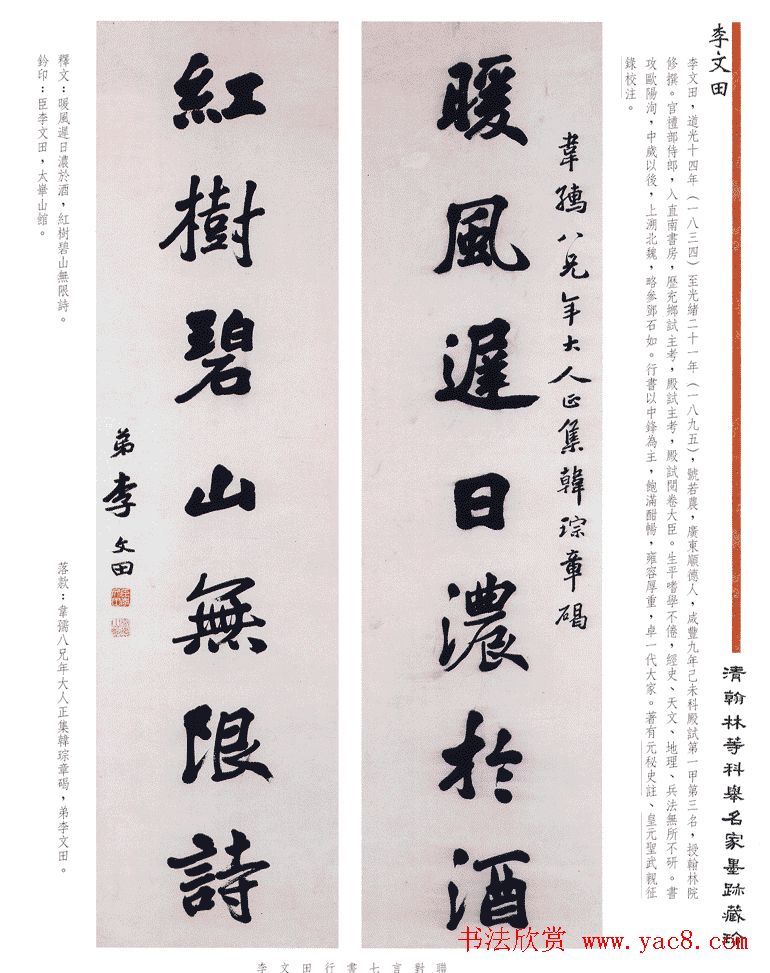 李文田
李文田，道光十四年（一八三四）至光緒二十一年（一八九五），號若農，廣東順德人，咸豐九年己未科殿試第一甲第三名，授翰林院
修撰。官禮部侍郎，入直南書房，歷充鄉試主考，殿試主考，殿試閱卷大臣。生平嗜學不倦，經史、天文、地理、兵法無所不研。書
攻歐陽洵，中歲以後，上溯北魏，略參鄧石如。行書以中鋒為主，飽滿酣暢，雍容厚重，卓一代大家。著有元秘史註、皇元聖武親征
錄校注。
清翰林等科舉名家墨跡藏珍
韋孺八兄年大人正集韓琮章碣
暖風遲日濃於酒
紅樹碧山無限詩
弟李文田
釋文：暖風遲日濃於酒，紅樹碧山無限詩。
鈐印：臣李文田，大崋山館。
落款：韋孺八兄年大人正集韓琮章碣，弟李文田。
李文田行書七言對聯
书法欣赏 www.yac8.com